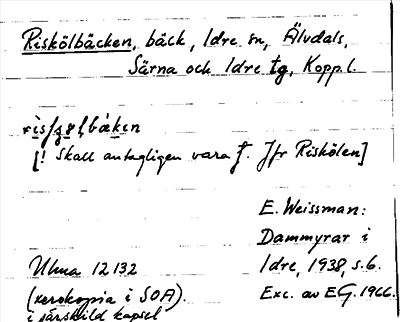 Riskölbäcken, bäck, Idre sn, Älvdals,
Särna och Idre tg, Kopp. l.
[! Skall antagligen vara ʃ. Jfr Riskölen]
E. Weissman:
Dammyrar i
Idre, 1938, s. 6.
Exc. av EG. 1966.
Ulma 12132
(xerokopia i SOA).
i särskild kapsel